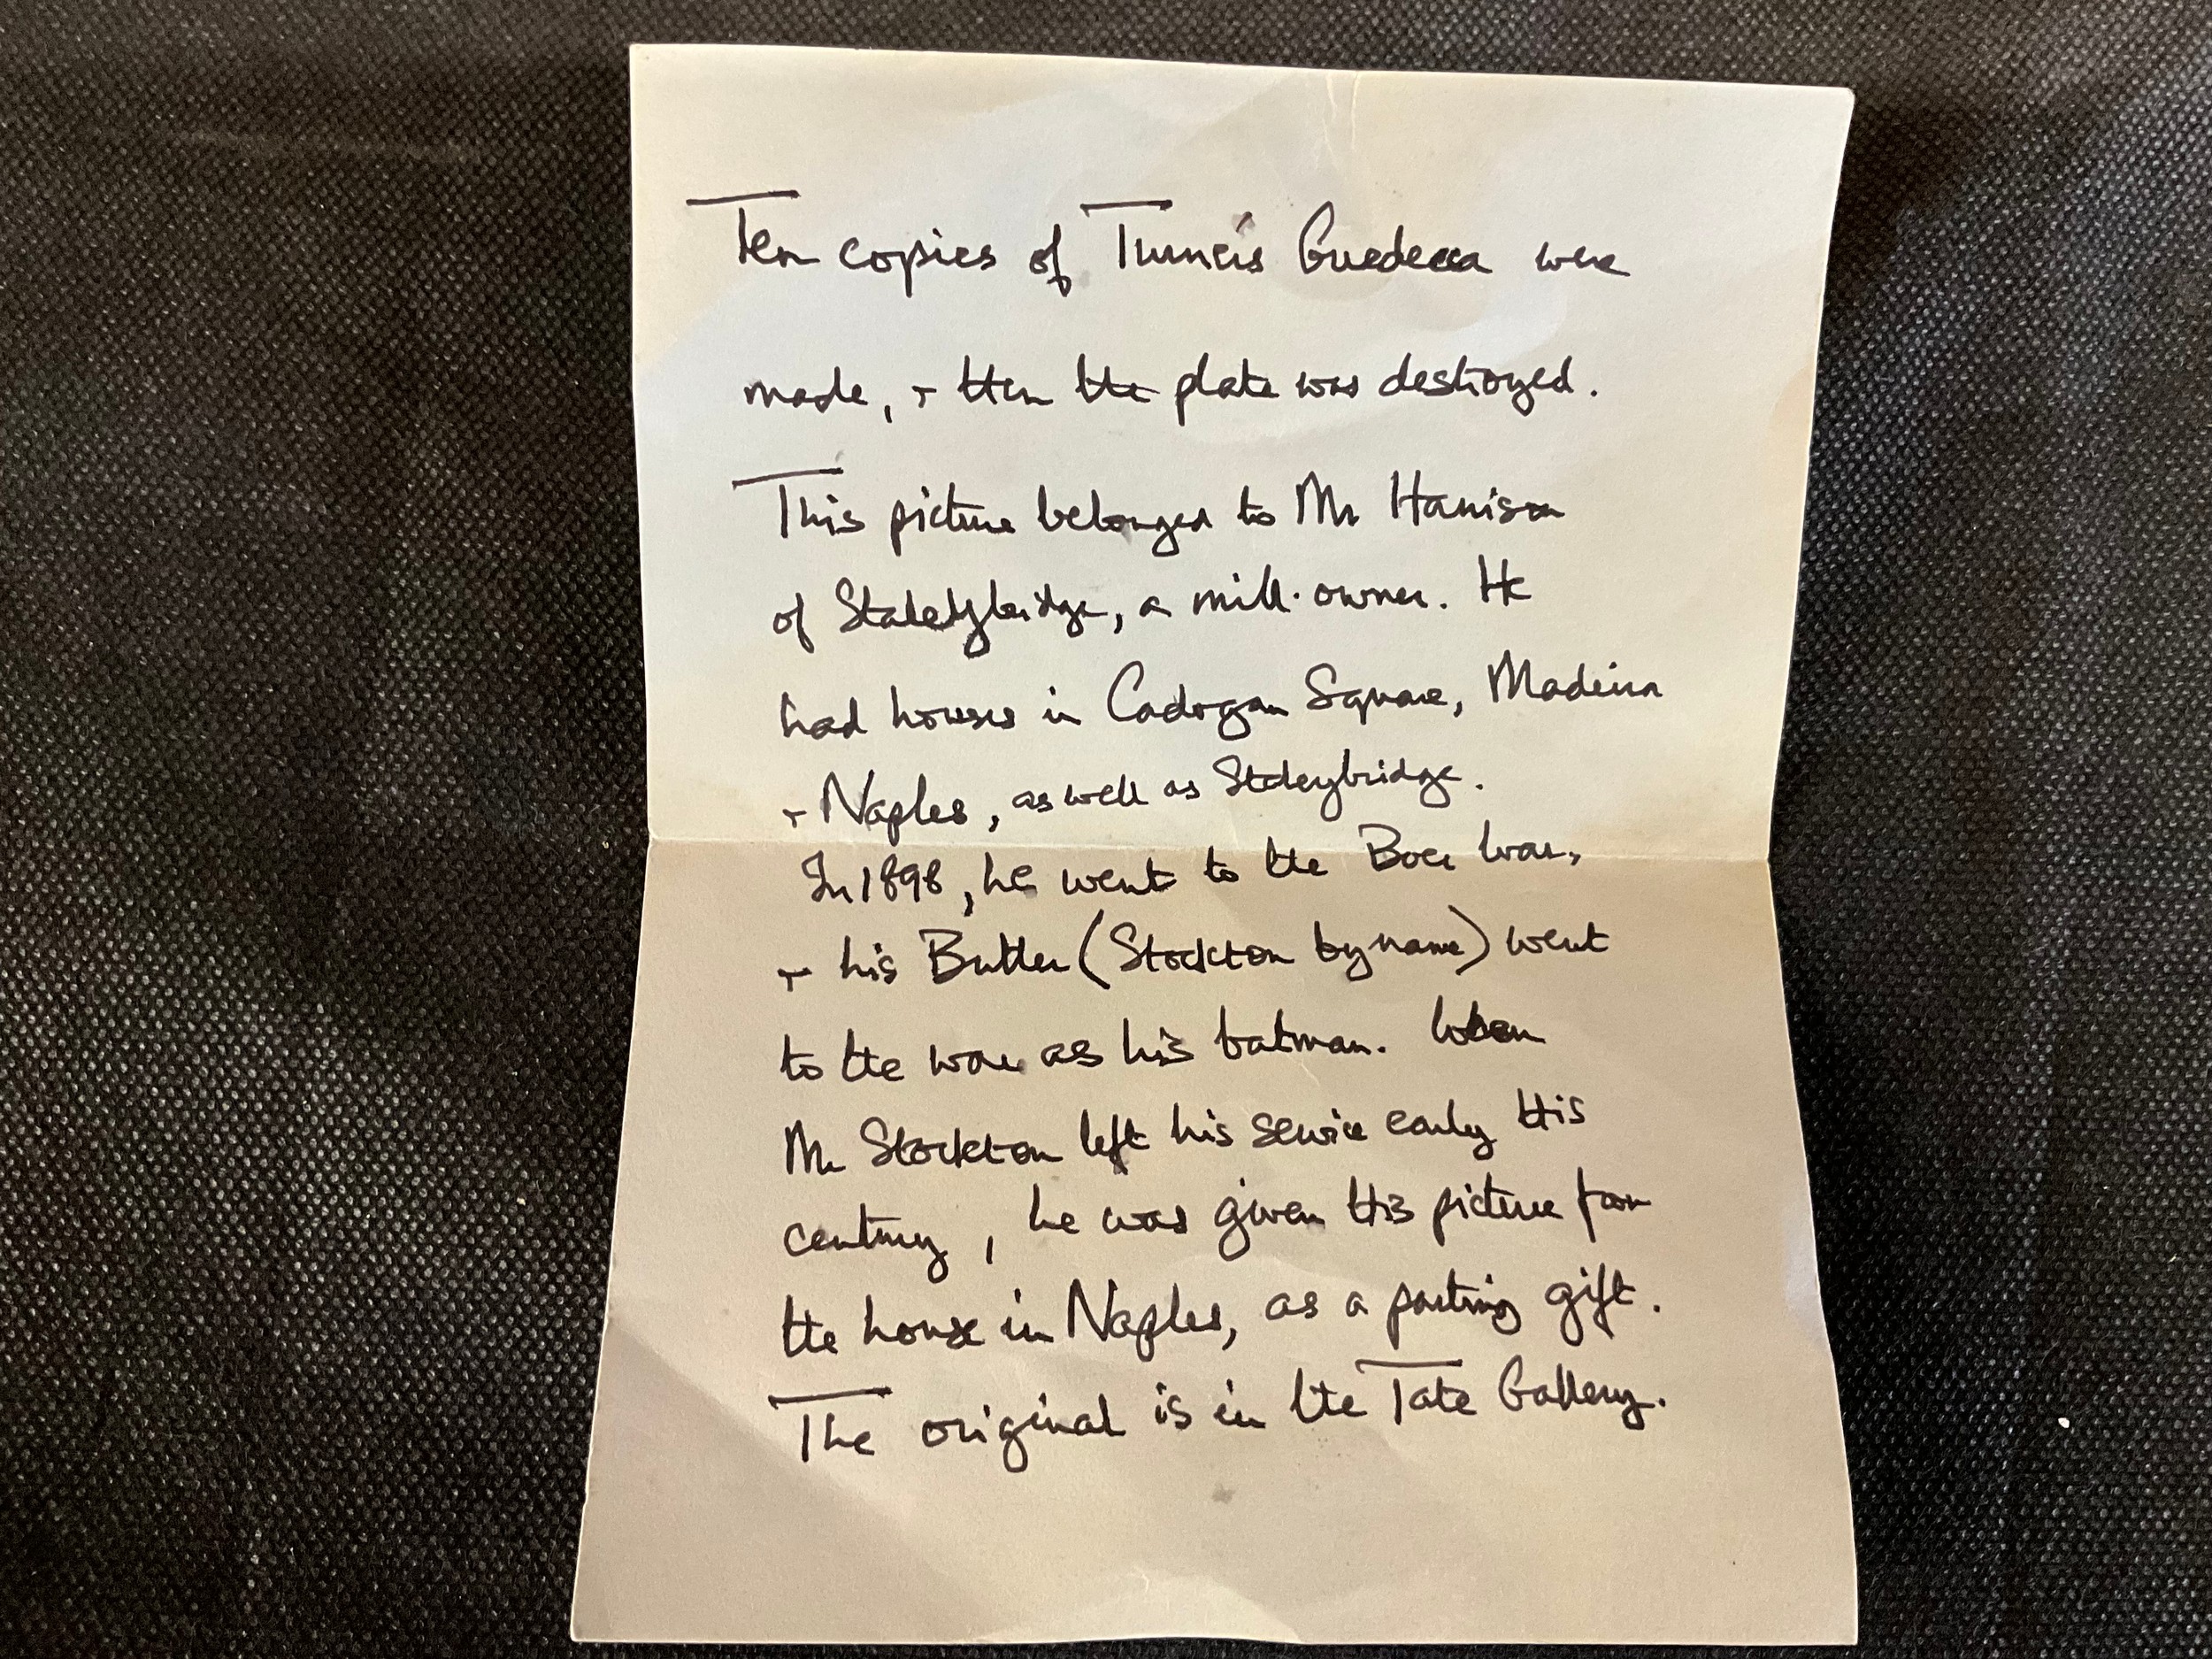 Ten copies of Turner's Guedecca were
made, + then the plate was destroyed.
This picture belonged to Mr Harrison
of Staleybridge, a mill-owner. He
had houses in Cadogan Square, Madeira
+ Naples, as well as Staleybridge.
In 1898, he went to the Boer War,
+ his Butler (Stockton by name) went
to the war as his batman. When
Mr Stockton left his service early this
century, he was given this picture from
the house in Naples, as a parting gift.
The original is in the Tate Gallery.